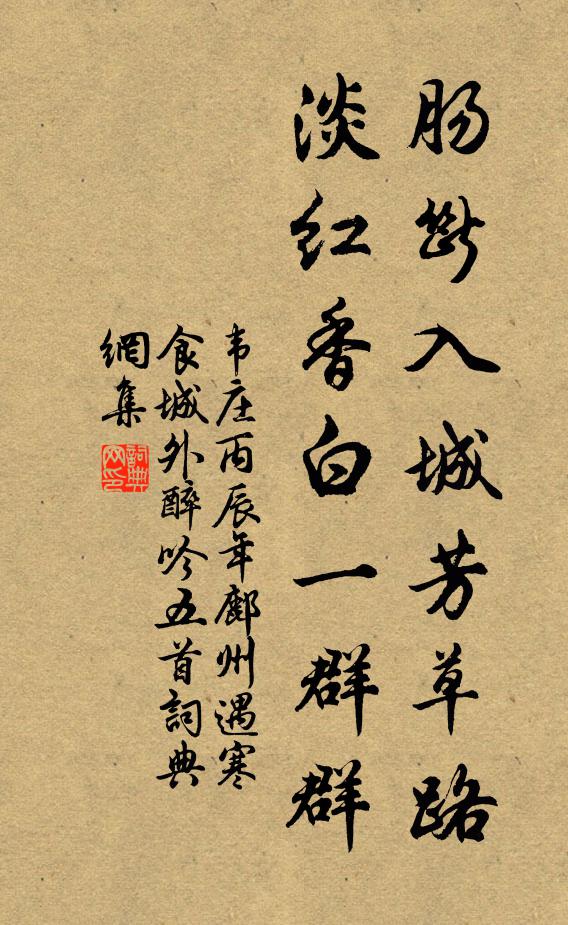 肠斷入城芳草路
淡红香白一群群
韦庄丙辰年鄜州遇寒
食城外醉吟五首詞典
網集
詞典网印